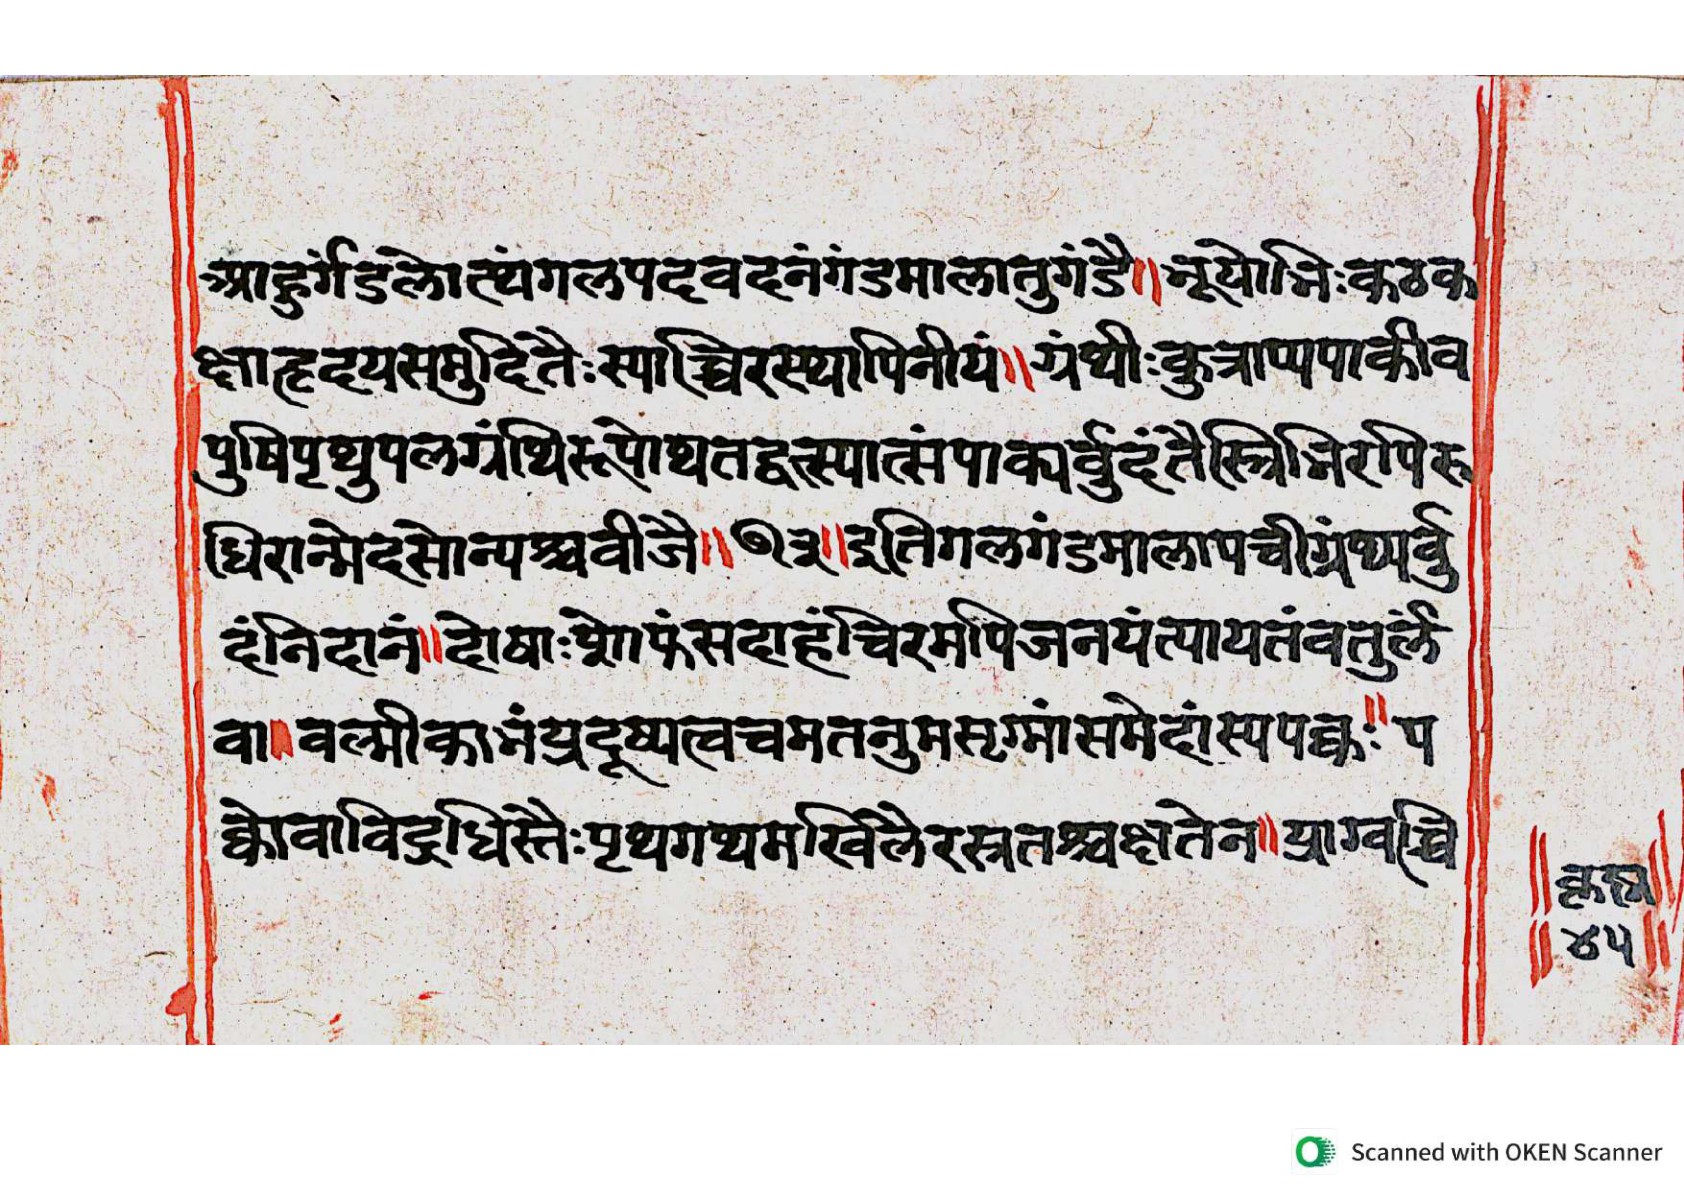 आहुर्गंडलोत्थंगलपदवदनंगंडमालातुगंडै॥भूयोभिःकठक
क्षाहृदयसमुदितैःस्याच्चिरस्थापिनीयं॥ग्रंथीःकुत्राप्यपाकीव
पुषिपृथुपलग्रंथिरूपोथतद्वत्स्यात्संपाक्यर्वुदंतैस्त्रिभिरपिरु
धिरान्मेदसोन्यश्चवीजै॥७३॥इतिगलगंडमालापचीग्रंथ्यर्वु
दंनिदानं॥दोषाःशोफंसदाहंचिरमपिजनयंत्यायतंवतुर्लं
वा॥वल्मीकाभंप्रदूष्यत्वचमतनुमसृग्मांसमेदांस्यपक्कः॥प
क्कोवाविद्रधिस्तैःपृथगथमखिलैरस्त्रतश्चक्षतेन॥प्राग्वच्चि
॥कृष्ण॥
॥४५॥
Scanned with OKEN Scanner